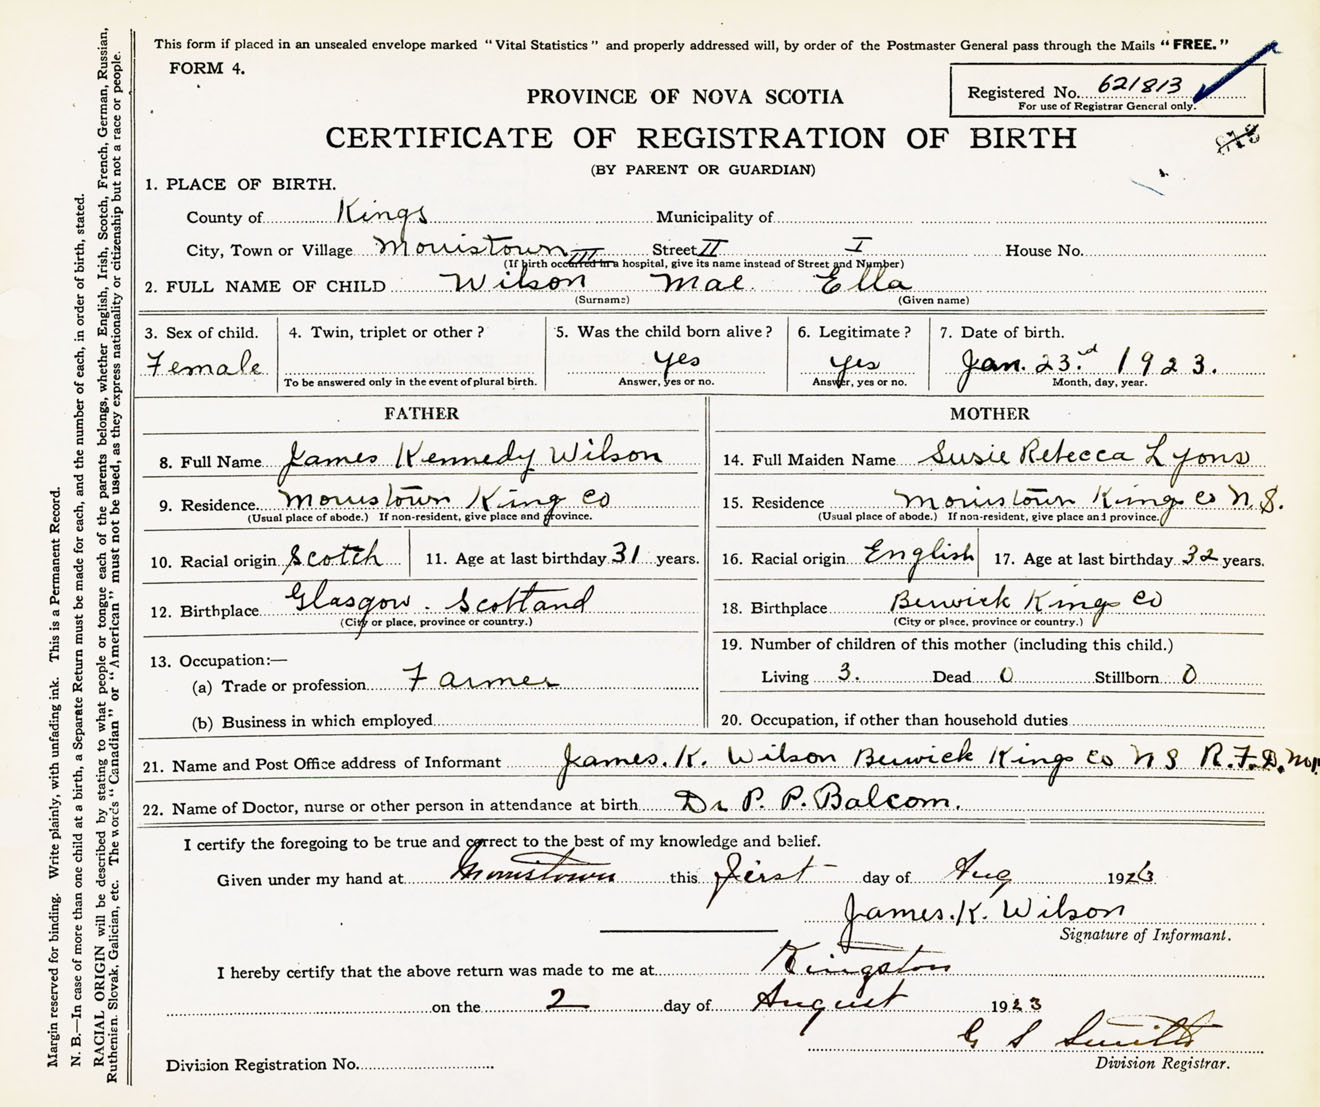 This form if placed in an unsealed envelope marked "Vital Statistics" and properly addressed will, by order of the Postmaster General pass through the Mails "FREE."
FORM 4.
Registered No. 621813
For use of Registrar General only.
PROVINCE OF NOVA SCOTIA
CERTIFICATE OF REGISTRATION OF BIRTH
(BY PARENT OR GUARDIAN)
1. PLACE OF BIRTH.
County of Kings Municipality of
City, Town or Village Morristown Street House No.
III II I
(If birth occurred in a hospital, give its name instead of Street and Number)
2. FULL NAME OF CHILD Wilson Mae Ella
(Surname) (Given name)
3. Sex of child. 4. Twin, triplet or other? 5. Was the child born alive? 6. Legitimate? 7. Date of birth.
Female yes yes Jan. 23rd 1923.
To be answered only in the event of plural birth. Answer, yes or no. Answer, yes or no. Month, day, year.
FATHER MOTHER
8. Full Name James Kennedy Wilson
9. Residence Morristown King Co
(Usual place of abode.) If non-resident, give place and province.
10. Racial origin Scotch 11. Age at last birthday 31 years.
12. Birthplace Glasgow. Scottand
(City or place, province or country.)
13. Occupation:—
(a) Trade or profession Farmer
(b) Business in which employed
14. Full Maiden Name Susie Rebecca Lyons
15. Residence Morristown Kings Co N.S.
(Usual place of abode.) If non-resident, give place and province.
16. Racial origin English 17. Age at last birthday 32 years.
18. Birthplace Berwick Kings Co
(City or place, province or country.)
19. Number of children of this mother (including this child.)
Living 3. Dead 0 Stillborn 0
20. Occupation, if other than household duties
21. Name and Post Office address of Informant James. K. Wilson Berwick Kings Co N S R.F.D.
22. Name of Doctor, nurse or other person in attendance at birth Dr P. P. Balcom.
I certify the foregoing to be true and correct to the best of my knowledge and belief.
Given under my hand at Morristown this first day of Aug 192
James. K. Wilson
Signature of Informant.
I hereby certify that the above return was made to me at Kingston
on the 2 day of August 1923
G S Smith
Division Registration No. Division Registrar.
Margin reserved for binding. Write plainly, with unfading ink. This is a Permanent Record.
N. B.—In case of more than one child at a birth, a Separate Return must be made for each, and the number of each, in order of birth, stated.
RACIAL ORIGIN will be described by stating to what people or tongue each of the parents belongs, whether English, Irish, Scotch, French, German, Russian,
Ruthenian, Slovak, Galician, etc. The words "Canadian" or "American" must not be used, as they express nationality or citizenship but not a race or people.